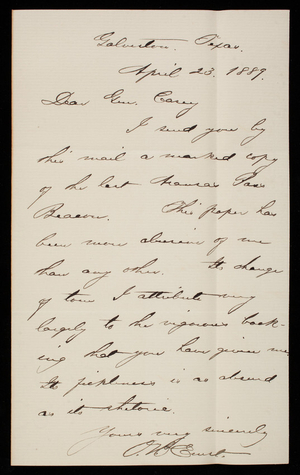 Galveston. Texas.
April 23. 1889.
Dear Gen. Casey
I send you by
this mail a marked copy
of the last Aransas Pass
Beacon. This paper has
been more abusive of me
than any other. Its change
of tone I attribute very
largely to the vigorous back-
ing that you have given me.
Its fickleness is as absurd
as its rhetoric.
Yours very sincerely
O. H. Ernst.